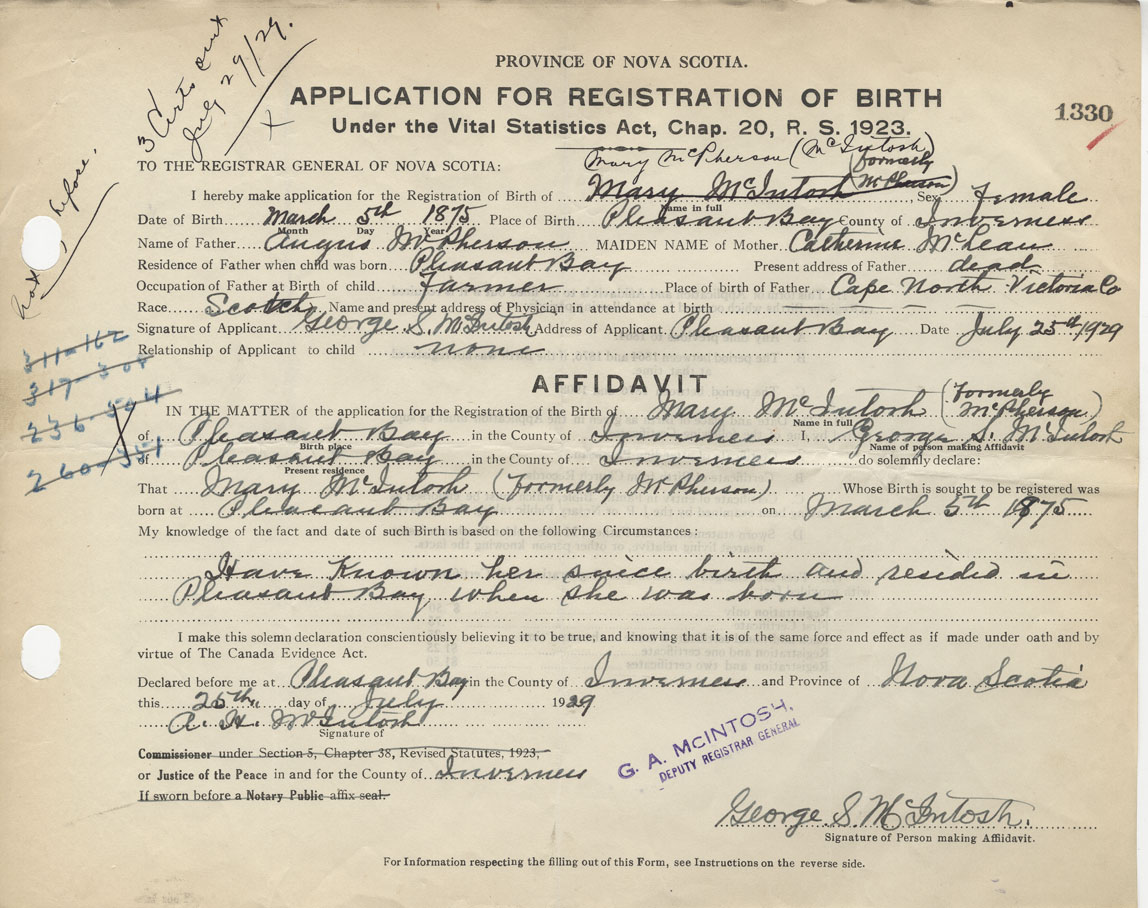 3 Certs sent
July 29/29.
X
not before.
PROVINCE OF NOVA SCOTIA.
APPLICATION FOR REGISTRATION OF BIRTH
1330
Under the Vital Statistics Act, Chap. 20, R. S. 1923.
Mary McPherson (McIntosh)
TO THE REGISTRAR GENERAL OF NOVA SCOTIA:
I hereby make application for the Registration of Birth of Mary McIntosh (formerly McPherson) Sex Female
Name in full
Date of Birth March 5th 1875 Place of Birth Pleasant Bay County of Inverness
Month Day Year
Name of Father Angus McPherson MAIDEN NAME of Mother Catherine McLean
Residence of Father when child was born Pleasant Bay Present address of Father dead
Occupation of Father at Birth of child Farmer Place of birth of Father Cape North Victoria Co
Race Scotch Name and present address of Physician in attendance at birth
Signature of Applicant George S. McIntosh Address of Applicant Pleasant Bay Date July 25th 1929
Relationship of Applicant to child none
311-162
317-308
236-504
260-351
AFFIDAVIT
IN THE MATTER of the application for the Registration of the Birth of Mary McIntosh (Formerly McPherson)
Name in full
of Pleasant Bay in the County of Inverness I, George S. McIntosh
Birth place Name of person making Affidavit
of Pleasant Bay in the County of Inverness do solemnly declare:
Present residence
That Mary McIntosh (Formerly McPherson) Whose Birth is sought to be registered was
born at Pleasant Bay on March 5th 1875
My knowledge of the fact and date of such Birth is based on the following Circumstances:
Have Known her since birth and resided in
Pleasant Bay when she was born
I make this solemn declaration conscientiously believing it to be true, and knowing that it is of the same force and effect as if made under oath and by
virtue of The Canada Evidence Act.
Declared before me at Pleasant Bay in the County of Inverness and Province of Nova Scotia
this 25th day of July 1929
A. H. McIntosh
Signature of
Commissioner under Section 5, Chapter 38, Revised Statutes, 1923,
or Justice of the Peace in and for the County of Inverness
If sworn before a Notary Public affix seal.
G. A. McINTOSH,
DEPUTY REGISTRAR GENERAL
George S. McIntosh.
Signature of Person making Affidavit.
For Information respecting the filling out of this Form, see Instructions on the reverse side.